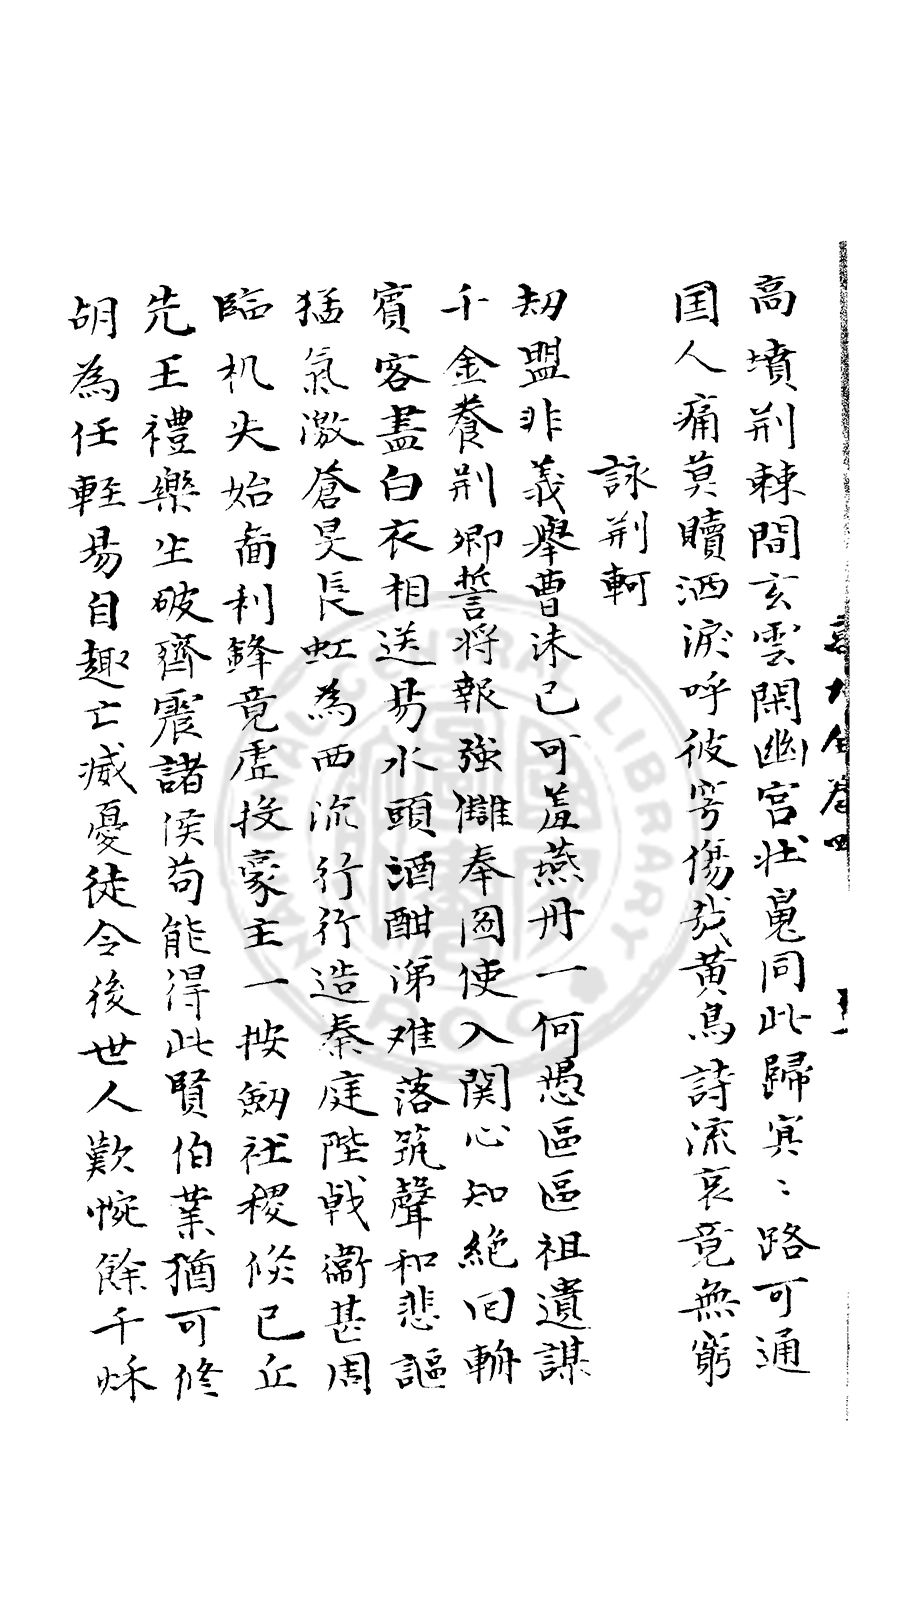 高墳荆棘間玄雲閑幽宮壯䰟同此歸冥〻路可通
囯人痛莫贖洒淚呼彼穹傷哉黄鳥詩流哀竟無窮
詠荆軻
刼盟非義舉曹沬已可羞燕丹一何愚區區祖遺謀
千金養荆卿誓将報強讎奉圖使入関心知絶回輈
賓客盡白衣相送易水頭酒酣涕难落筑聲和悲謳
猛氣激蒼旻長虹為西流行行造秦庭陛戟衞甚周
臨机失始啚利鋒竟虛投豪主一按劒社稷倏已丘
先王禮樂生破齊震諸侯苟能得此賢伯業猶可修
胡為任輕易自趣亡滅憂徒令後世人歎惋餘千秌
NATIONAL CENTRAL LIBRARY R.O.C.